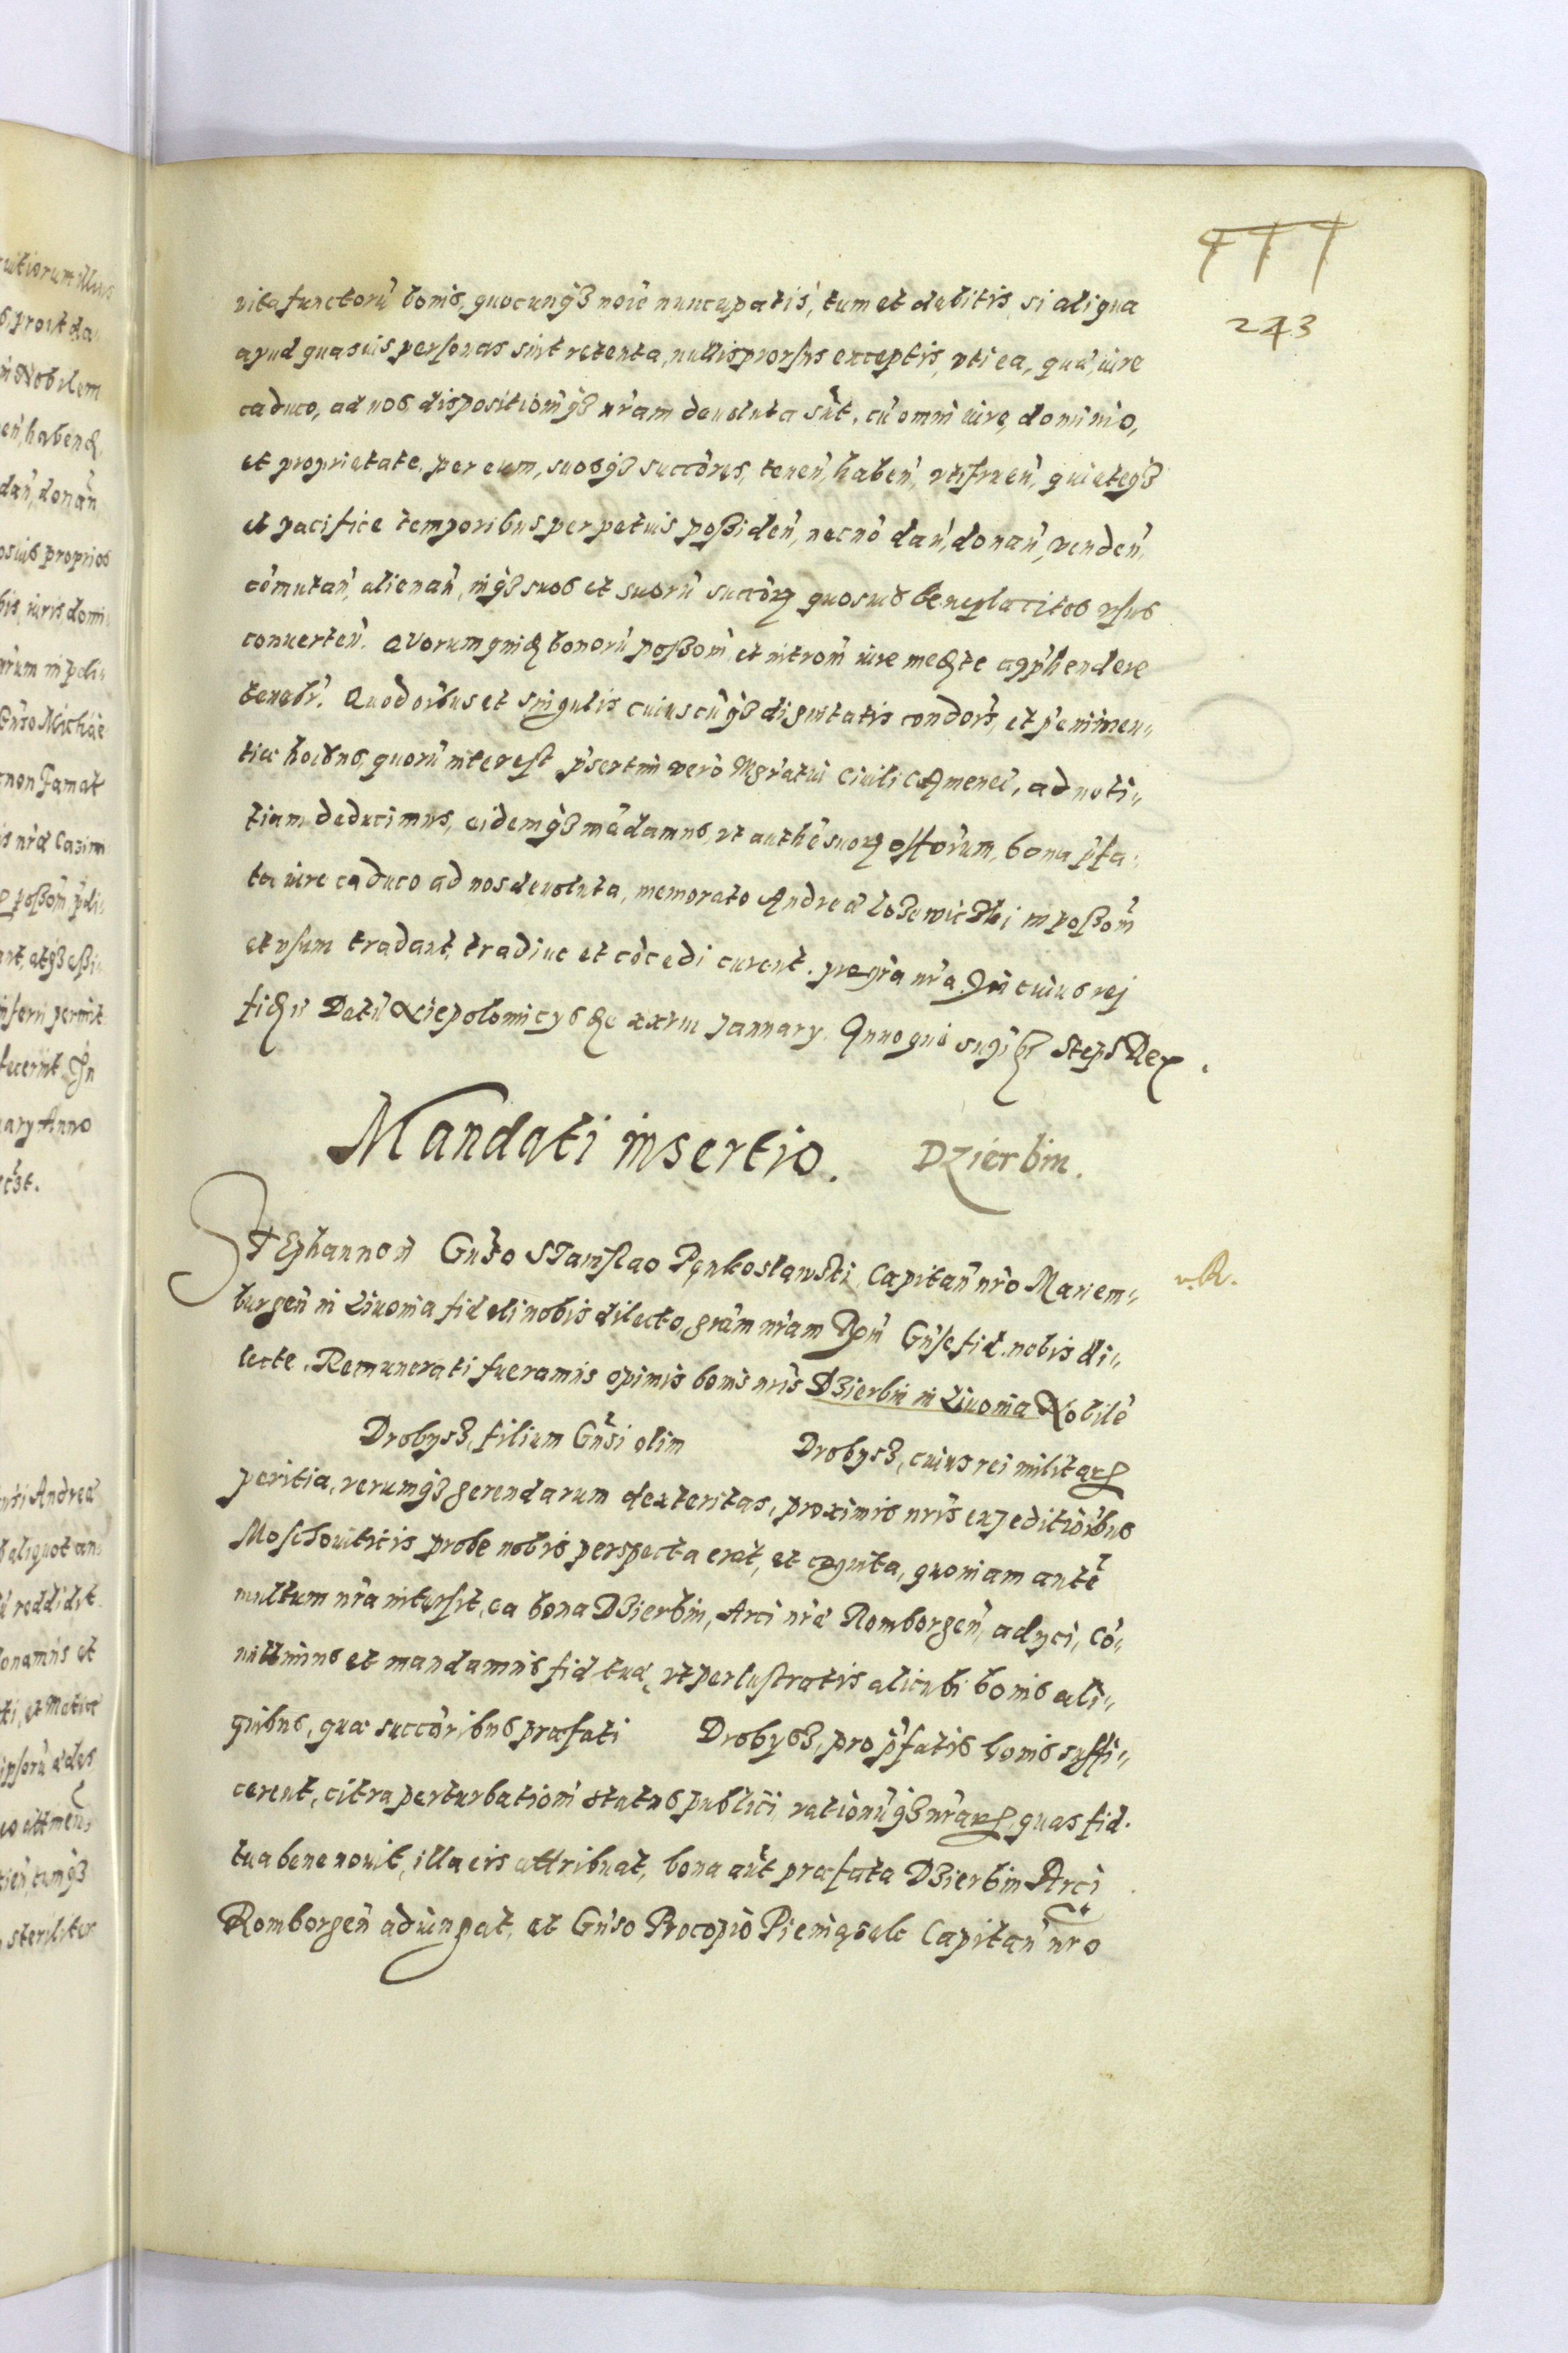 243
vitafunctorũ bonis, quocunq3 noïe nuncupatis, tum et debitis si aliqua
apud quasuis personas sint retenta, nullis prorsus exceptis, vti ea, quæ, iure
caduco, ad nos dispositionẽq3 nr̃am deuoluta sũt, cũ omni iure, dominio,
et proprietate, per eum, suosq3 succ̃ores, teneñ, habeñ, vtifrueñ, quieteq3
et pacifice temporibus perpetuis poßideñ, necnõ dañ, donañ, vendeñ,
cõmutañ, alienañ, inq3 suos et suorũ succ̃orꝝ quosuis beneplacitos vsus
conuerteñ. Quorum quidẽ bonorũ poßeoñ, et intromi iure mediãte app̃hendere
tenebr̃. Quod oĩbus et singulis cuiuscũq3 dignitatis condoñs, et p̃eminen„
tiæ hoĩbus, quorũ interest p̃sertim vero Mgr̃atui Ciuili Camenec̃, ad noti„
tiam deducimus, eidemq3 mãdamus, vt authẽ suorꝝ offorum, bona p̃fa„
ta iure caduco ad nos deuoluta, memorato Andreæ in poßeoñ
et vsum tradant, tradiue et cõcedi curent. pro gr̃a nr̃a. In cuius rej
fidẽ Datũ Niepolomicys die Januarij Anno quo sup̃ Steph Rex.
Mandati insertio. Dzierbin.
STephanno Gñso Stanislao Pęnkosławski, Capitañ nr̃o Mariem„
burgeñ in Liuonia fideli nobis dilecto, gr̃am nr̃am Rgiã Gñse fid. nobis di„
lecte. Remunerati fueramus opimis bonis nr̃is D3ierbin in Liuonia Nobilẽ
Drobys3, filium Gñsi olim Drobys3, cuius rei militarꝭ
peritia, rerumq3 gerendarum dexteritas, proximis nr̃is expeditioĩbus
Moschouiticis probe nobis perspecta erat, et cognita, quoniam autẽ
multum nr̃a intersit, ea bona D3ierbin, Arci nr̃æ Romborgeñ, adijci, Cõ„
mittimus et mandamus fid. tuæ, vt perlustratis alicubi bonis ali„
quibus, quæ succ̃oribus præfati Drobys3, pro p̃fatis bonis suffi„
cerent, citra perturbationẽ status publici, rationũq3 nr̃arꝭ, quas fid.
tua bene nouit, illa eis attribuat, bona aũt præfata D3ierbin Arci
Romborgeñ adiungat, et Gñso Procopio Pieniąsek Capitañ nr̃o